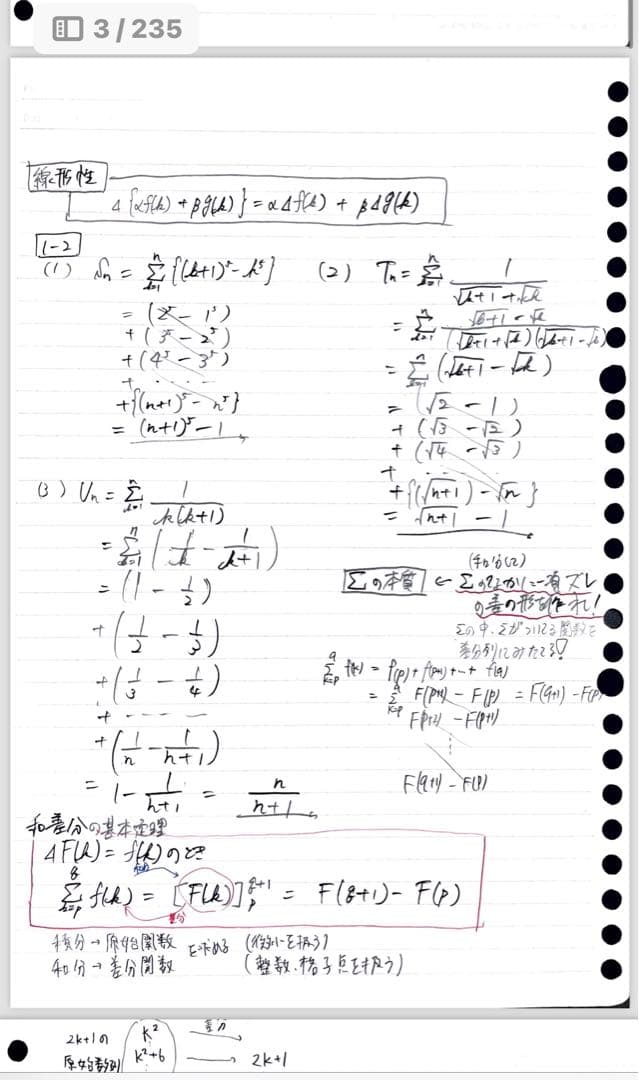 3 / 235
線形性
Δ{αf(k) + βg(k)} = αΔf(k) + βΔg(k)
1-2
(1) Sn = Σ[k=1→n] {(k+1)⁵ - k⁵}
= (2⁵ - 1⁵)
+ (3⁵ - 2⁵)
+ (4⁵ - 3⁵)
+ ・・・・
+ {(n+1)⁵ - n⁵}
= (n+1)⁵ - 1
(2) Tn = Σ[k=1→n] 1/(√k+1 + √k)
= Σ[k=1→n] (√k+1 - √k)/(√k+1 + √k)(√k+1 - √k)
= Σ[k=1→n] (√k+1 - √k)
= (√2 - 1)
+ (√3 - √2)
+ (√4 - √3)
+ ・・・・
+ {(√n+1) - √n}
= √n+1 - 1
(3) Un = Σ[k=1→n] 1/k(k+1)
= Σ[k=1→n] (1/k - 1/k+1)
= (1 - 1/2)
+ (1/2 - 1/3)
+ (1/3 - 1/4)
+ ・・・・
+ (1/n - 1/n+1)
= 1 - 1/n+1 = n/n+1
(和分(Σ))
Σの本質 ← Σの
一項ズレ
の差の形を作れ!
Σの中、Σがついてる関数を
差分列にみたてる!
Σ[k=p→q] f(k) = f(p) + f(p+1) + ・・ + f(q)
= Σ[k=p→q] F(p+1) - F(p) = F(q+1) - F(p)
F(p+2) - F(p+1)
⋮
F(q+1) - F(p)
和差分の基本定理
ΔF(k) = f(k) のとき
和分
Σ[k=p→q] f(k) = [F(k)]q+1 p = F(q+1) - F(p)
差分
積分 → 原始関数 を求める (微小を扱う)
和分 → 差分関数 (整数、格子点を扱う)
2k+1の K² 差分
原始数列 K²+6 → 2k+1